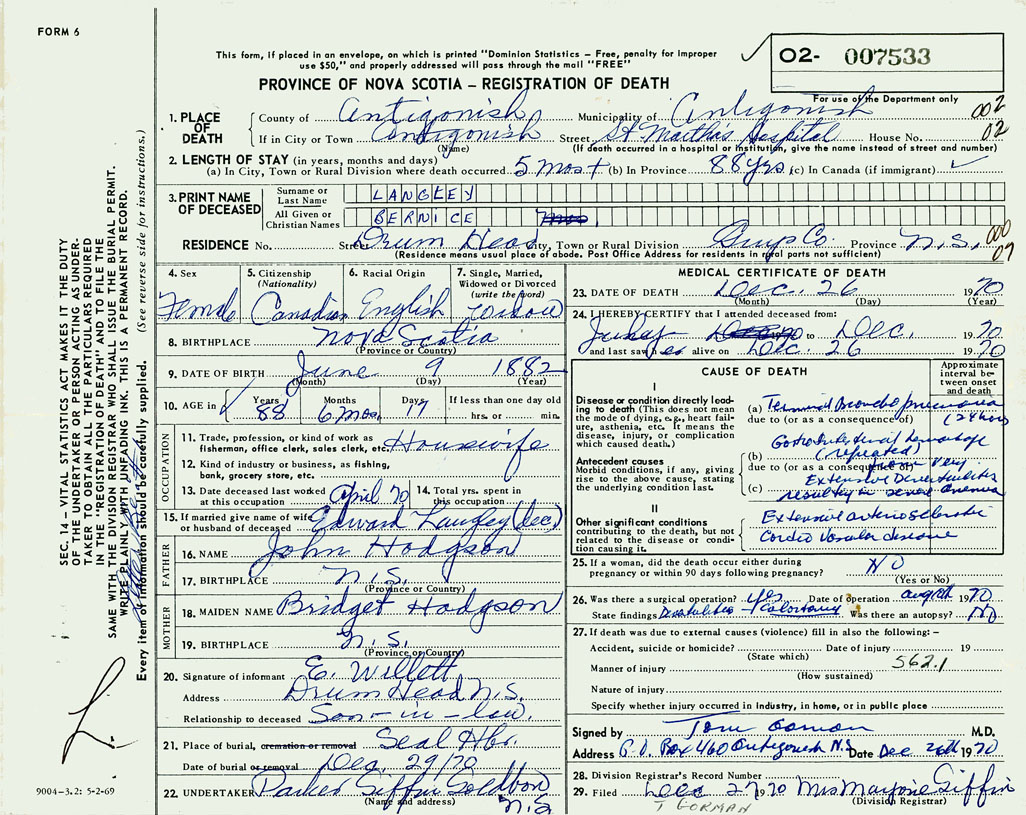 FORM 6
This form, if placed in an envelope, on which is printed "Dominion Statistics – Free, penalty for improper
use $50," and properly addressed will pass through the mail "FREE"
O2- 007533
For use of the Department only
PROVINCE OF NOVA SCOTIA – REGISTRATION OF DEATH
002
02
1. PLACE OF DEATH
County of Antigonish Municipality of Antigonish
If in City or Town Antigonish Street St Martha's Hospital House No.
(Name) (If death occurred in a hospital or institution, give the name instead of street and number)
2. LENGTH OF STAY (in years, months and days)
(a) In City, Town or Rural Division where death occurred 5 mos (b) In Province 88 yrs (c) In Canada (if immigrant)
3. PRINT NAME OF DECEASED
Surname or Last Name LANGLEY
All Given or Christian Names BERNICE
RESIDENCE No. Street Drum Head City, Town or Rural Division Guys Co. Province N.S.
(Residence means usual place of abode. Post Office Address for residents in rural parts not sufficient)
000
07
4. Sex Female
5. Citizenship (Nationality) Canadian
6. Racial Origin English
7. Single, Married, Widowed or Divorced (write the word) Widow
8. BIRTHPLACE Nova Scotia
(Province or Country)
9. DATE OF BIRTH June 9 1882
(Month) (Day) (Year)
10. AGE in Years 88 Months 6 mos. Days 17 If less than one day old hrs. or min.
OCCUPATION
11. Trade, profession, or kind of work as fisherman, office clerk, sales clerk, etc. Housewife
12. Kind of industry or business, as fishing, bank, grocery store, etc.
13. Date deceased last worked at this occupation April 70 14. Total yrs. spent in this occupation
15. If married give name of wife or husband of deceased Edward Langley (dec)
FATHER
16. NAME John Hodgson
17. BIRTHPLACE N.S.
(Province or Country)
MOTHER
18. MAIDEN NAME Bridget Hodgson
19. BIRTHPLACE N.S.
(Province or Country)
20. Signature of informant E. Willett
Address Drum Head N.S.
Relationship to deceased Son-in-law.
21. Place of burial, cremation or removal Seal Hbr.
Date of burial or removal Dec. 29/70
22. UNDERTAKER Parker Giffin Goldboro N.S
(Name and address)
MEDICAL CERTIFICATE OF DEATH
23. DATE OF DEATH Dec. 26 1970
(Month) (Day) (Year)
24. I HEREBY CERTIFY that I attended deceased from:
July 1970 to Dec. 1970
and last saw her alive on Dec. 26 1970
CAUSE OF DEATH
Approximate interval between onset and death
I
Disease or condition directly leading to death (This does not mean the mode of dying, e.g., heart failure, asthenia, etc. it means the disease, injury, or complication which caused death.)
(a) Terminal Broncho pneumonia
due to (or as a consequence of) (24 hours
Antecedent causes
Morbid conditions, if any, giving rise to the above cause, stating the underlying condition last.
(b) Gastrointestinal hemorrhage
(repeated)
due to (or as a consequence of) very
(c) Extensive Diverticulitis
resulting in severe anemia
II
Other significant conditions contributing to the death, but not related to the disease or condition causing it.
Extensive arteriosclerotic
Cardio Vascular disease
25. If a woman, did the death occur either during pregnancy or within 90 days following pregnancy? NO
(Yes or No)
26. Was there a surgical operation? yes Date of operation 1970
State findings Was there an autopsy? No
27. If death was due to external causes (violence) fill in also the following: –
Accident, suicide or homicide? Date of injury 19
(State which) 562.1
Manner of injury
(How sustained)
Nature of injury
Specify whether injury occurred in industry, in home, or in public place
Signed by Tom Gorman M.D.
Address P.O. Box 460 Antigonish N.S. Date Dec 26th 1970
28. Division Registrar's Record Number
29. Filed Dec 29 1970 Mrs Marjorie Giffin
(Division Registrar)
T GORMAN
SEC. 14 – VITAL STATISTICS ACT MAKES IT THE DUTY
OF THE UNDERTAKER OR PERSON ACTING AS UNDER-
TAKER TO OBTAIN ALL THE PARTICULARS REQUIRED
IN THE "REGISTRATION OF DEATH" AND TO FILE THE
SAME WITH THE DIVISION REGISTRAR WHO SHALL ISSUE THE BURIAL PERMIT.
WRITE PLAINLY WITH UNFADING INK. THIS IS A PERMANENT RECORD.
Every item of information should be carefully supplied. (See reverse side for instructions.)
9004-3.2: 5-2-69